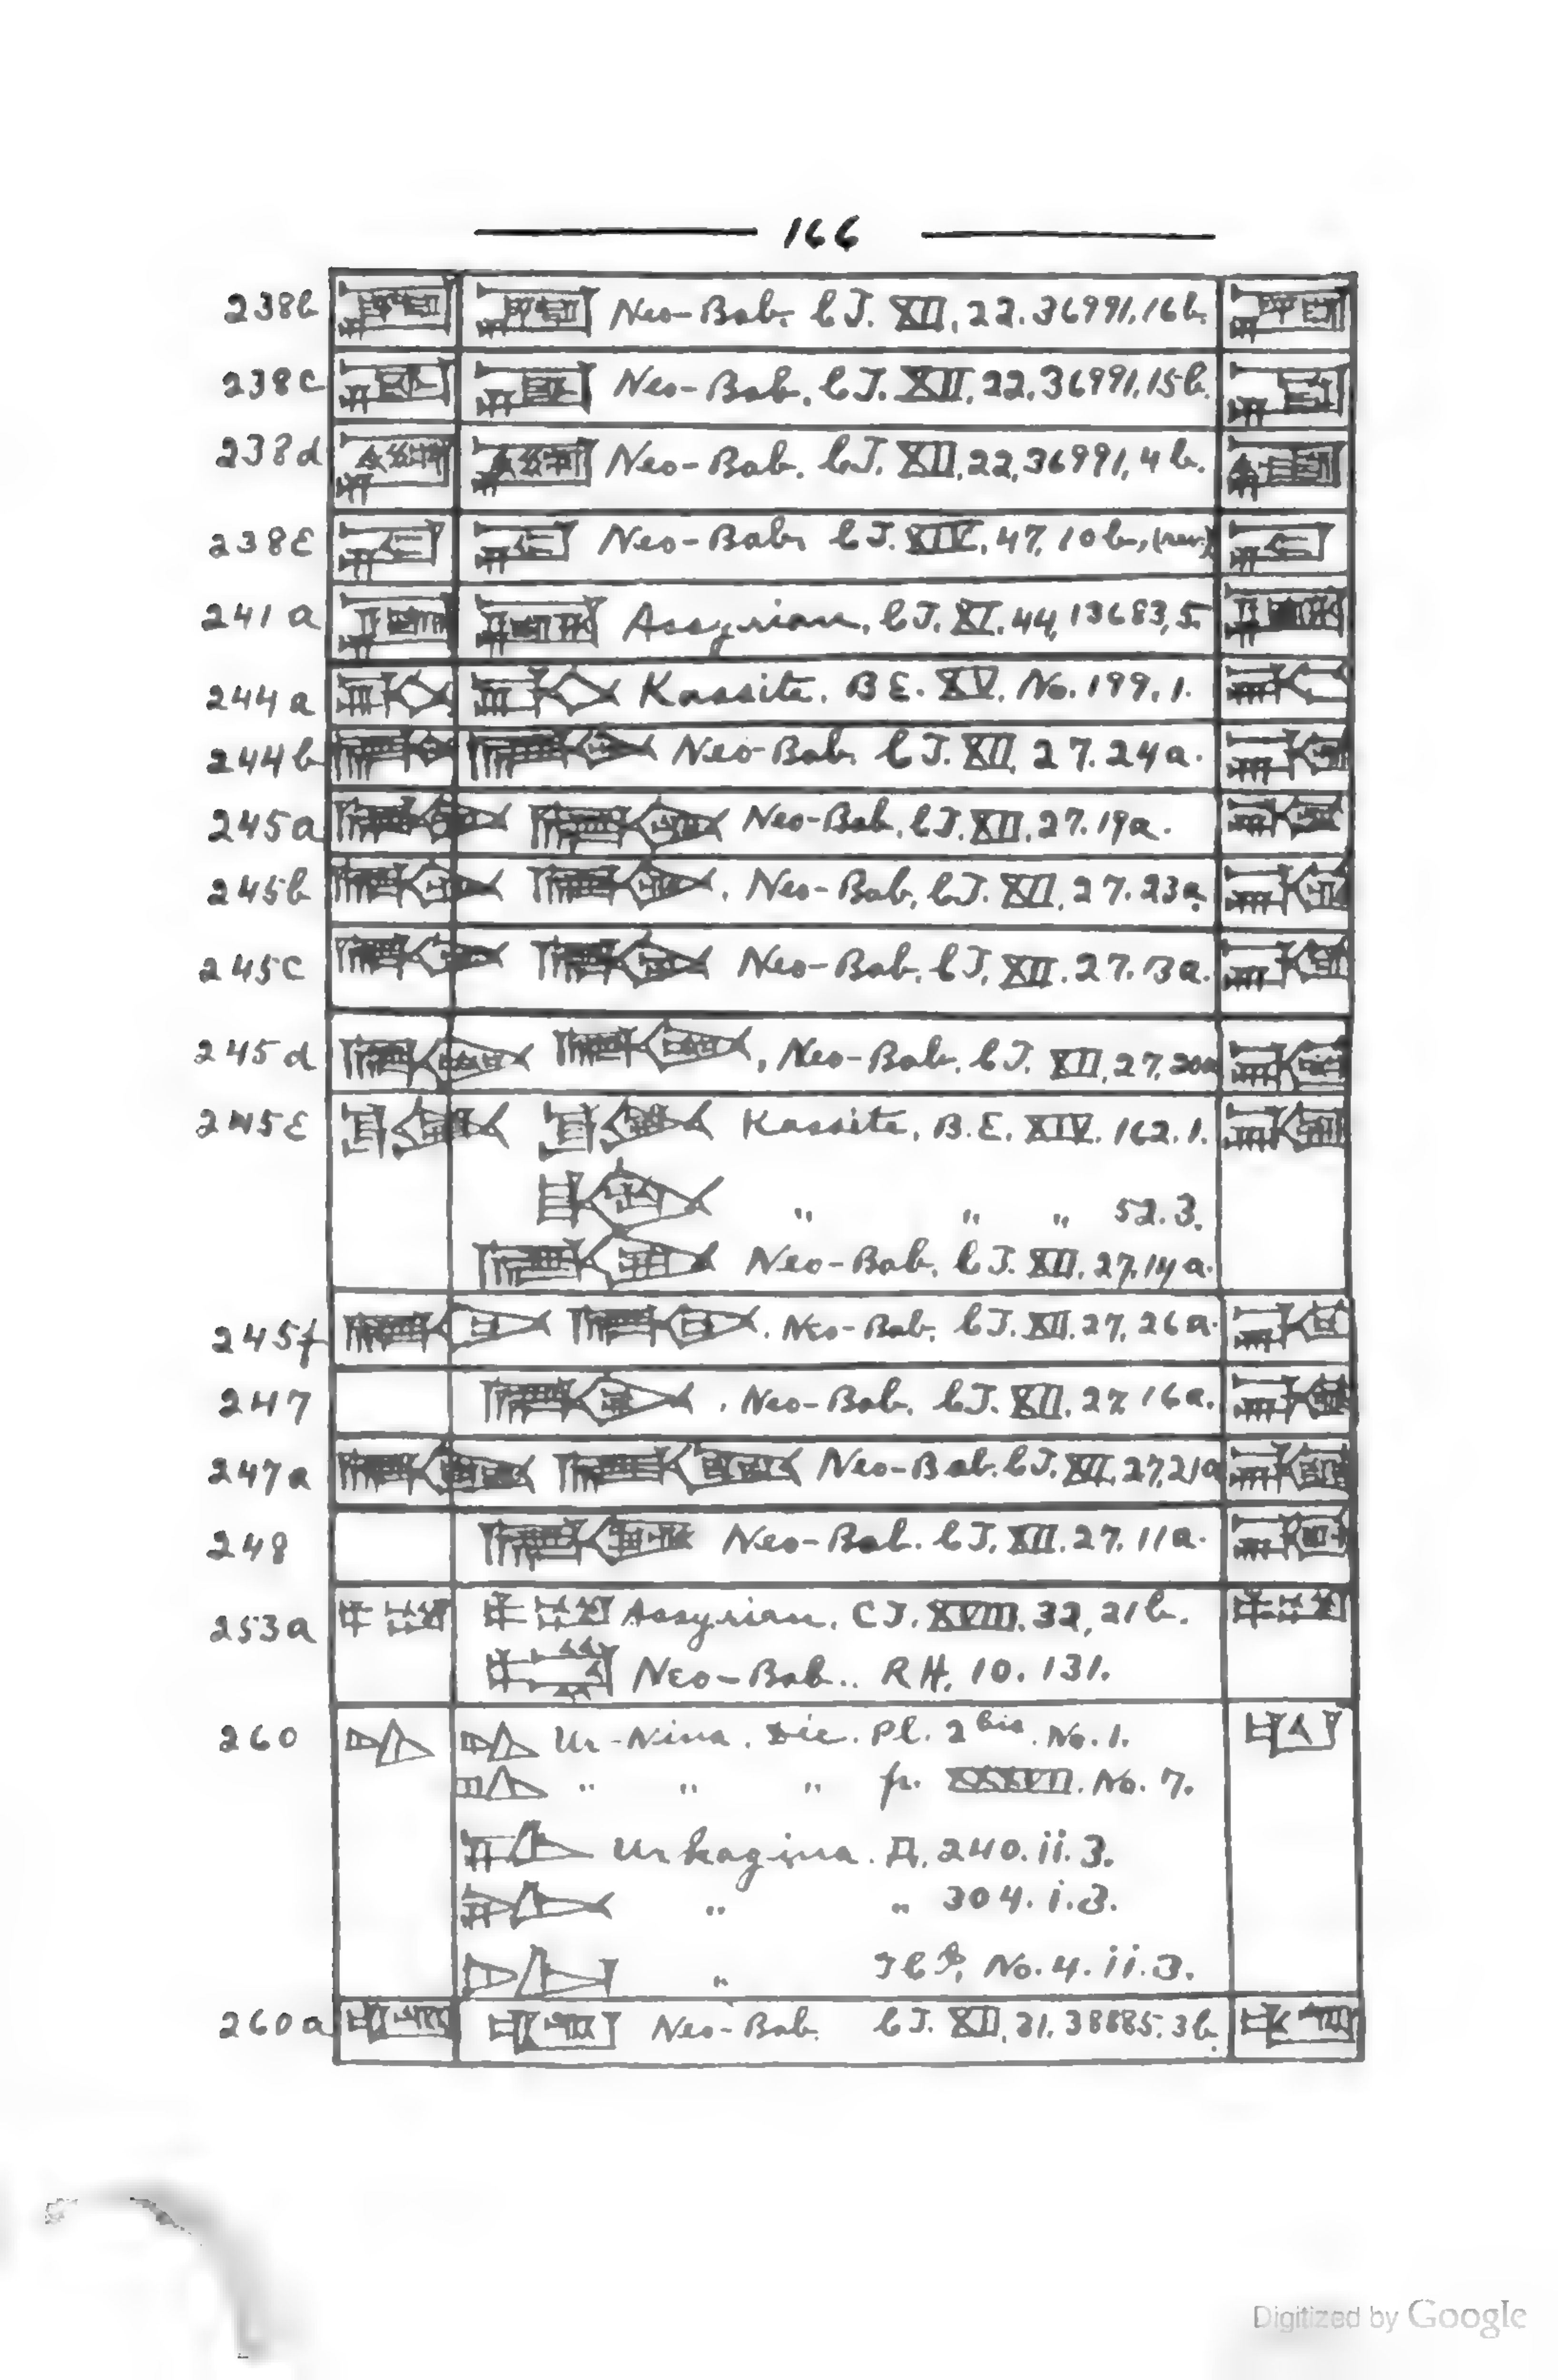 166
238b Neo-Bab. CT. XII, 22. 36991, 16b.
238c Neo-Bab. CT. XII, 22, 36991, 15b.
238d Neo-Bab. CT. XII, 22, 36991, 4b.
238e Neo-Bab. CT. XIV, 47, 10b, (rev.)
241a Assyrian, CT. XI, 44, 13683, 5.
244a Kassite. BE. XV. No. 199, 1.
244b Neo-Bab. CT. XII, 27. 24a.
245a Neo-Bab. CT. XII, 27. 19a.
245b Neo-Bab. CT. XII, 27. 23a.
245c Neo-Bab. CT. XII. 27. 13a.
245d Neo-Bab. CT. XII, 27, 20a
245e Kassite, B.E. XIV. 162. 1.
" " " 52. 3.
Neo-Bab. CT. XII, 27. 14a.
245f Neo-Bab. CT. XII. 27, 26a.
247 Neo-Bab. CT. XII, 27. 16a.
247a Neo-Bab. CT. XII, 27, 21a
248 Neo-Bab. CT. XII. 27. 11a.
253a Assyrian. CT. XVIII. 32, 21b.
Neo-Bab.. RH. 10. 131.
260 Ur-Nina. Déc. Pl. 2 bis. No. 1.
" " " p. XXXVII. No. 7.
Urkagina. 240. ii. 3.
" " 304. i. 3.
" No. 4. ii. 3.
260a Neo-Bab. CT. XII, 31. 38885, 3b.
Digitized by Google